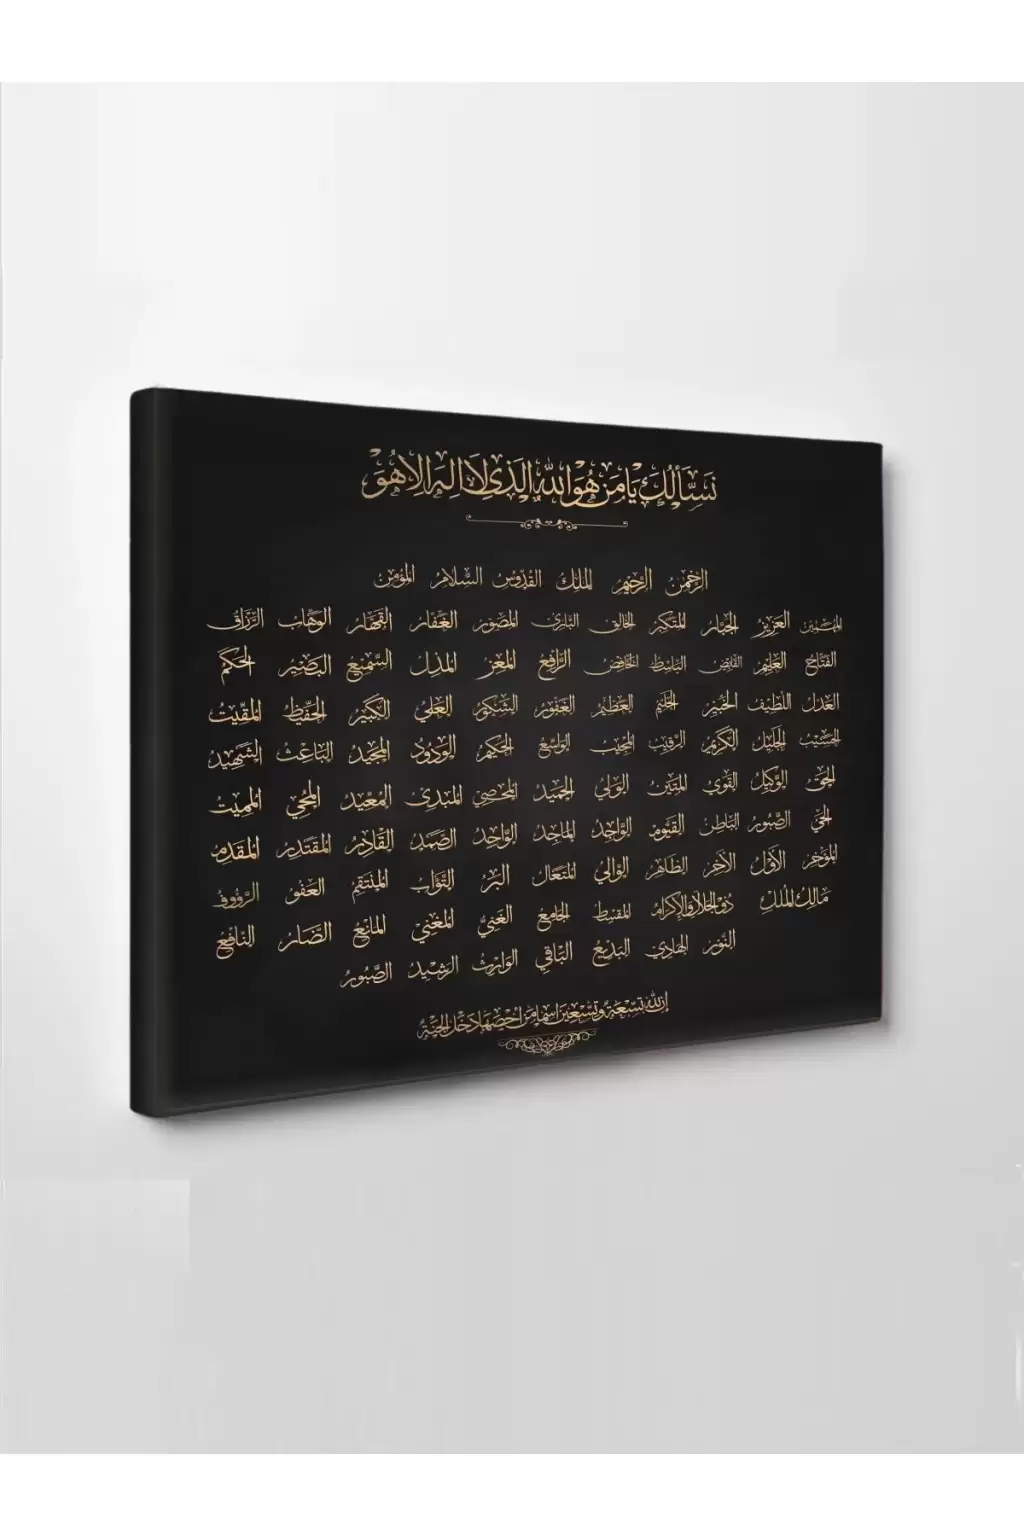 نَسْأَلُكَ يَا مَنْ هُوَ اللهُ الَّذِي لَا إِلَهَ إِلَّا هُوَ
الرحمن الرحيم الملك القدوس السلام المؤمن
المهيمن العزيز الجبار المتكبر الخالق البارئ المصور الغفار القهار الوهاب الرزاق
الفتاح العليم القابض الباسط الخافض الرافع المعز المذل السميع البصير الحكم
العدل اللطيف الخبير الحليم العظيم الغفور الشكور العلي الكبير الحفيظ المقيت
الحسيب الجليل الكريم الرقيب المجيب الواسع الحكيم الودود المجيد الباعث الشهيد
الحق الوكيل القوي المتين الولي الحميد المحصي المبدئ المعيد المحيي المميت
الحي الصبور الباطن القيوم الواجد الماجد الواحد الصمد القادر المقتدر المقدم
المؤخر الأول الآخر الظاهر الوالي المتعال البر التواب المنتقم العفو الرؤوف
مالك الملك ذو الجلال والإكرام المقسط الجامع الغني المغني المانع الضار النافع
النور الهادي البديع الباقي الوارث الرشيد الصبور
إن لله تسعة وتسعين اسما من أحصاها دخل الجنة